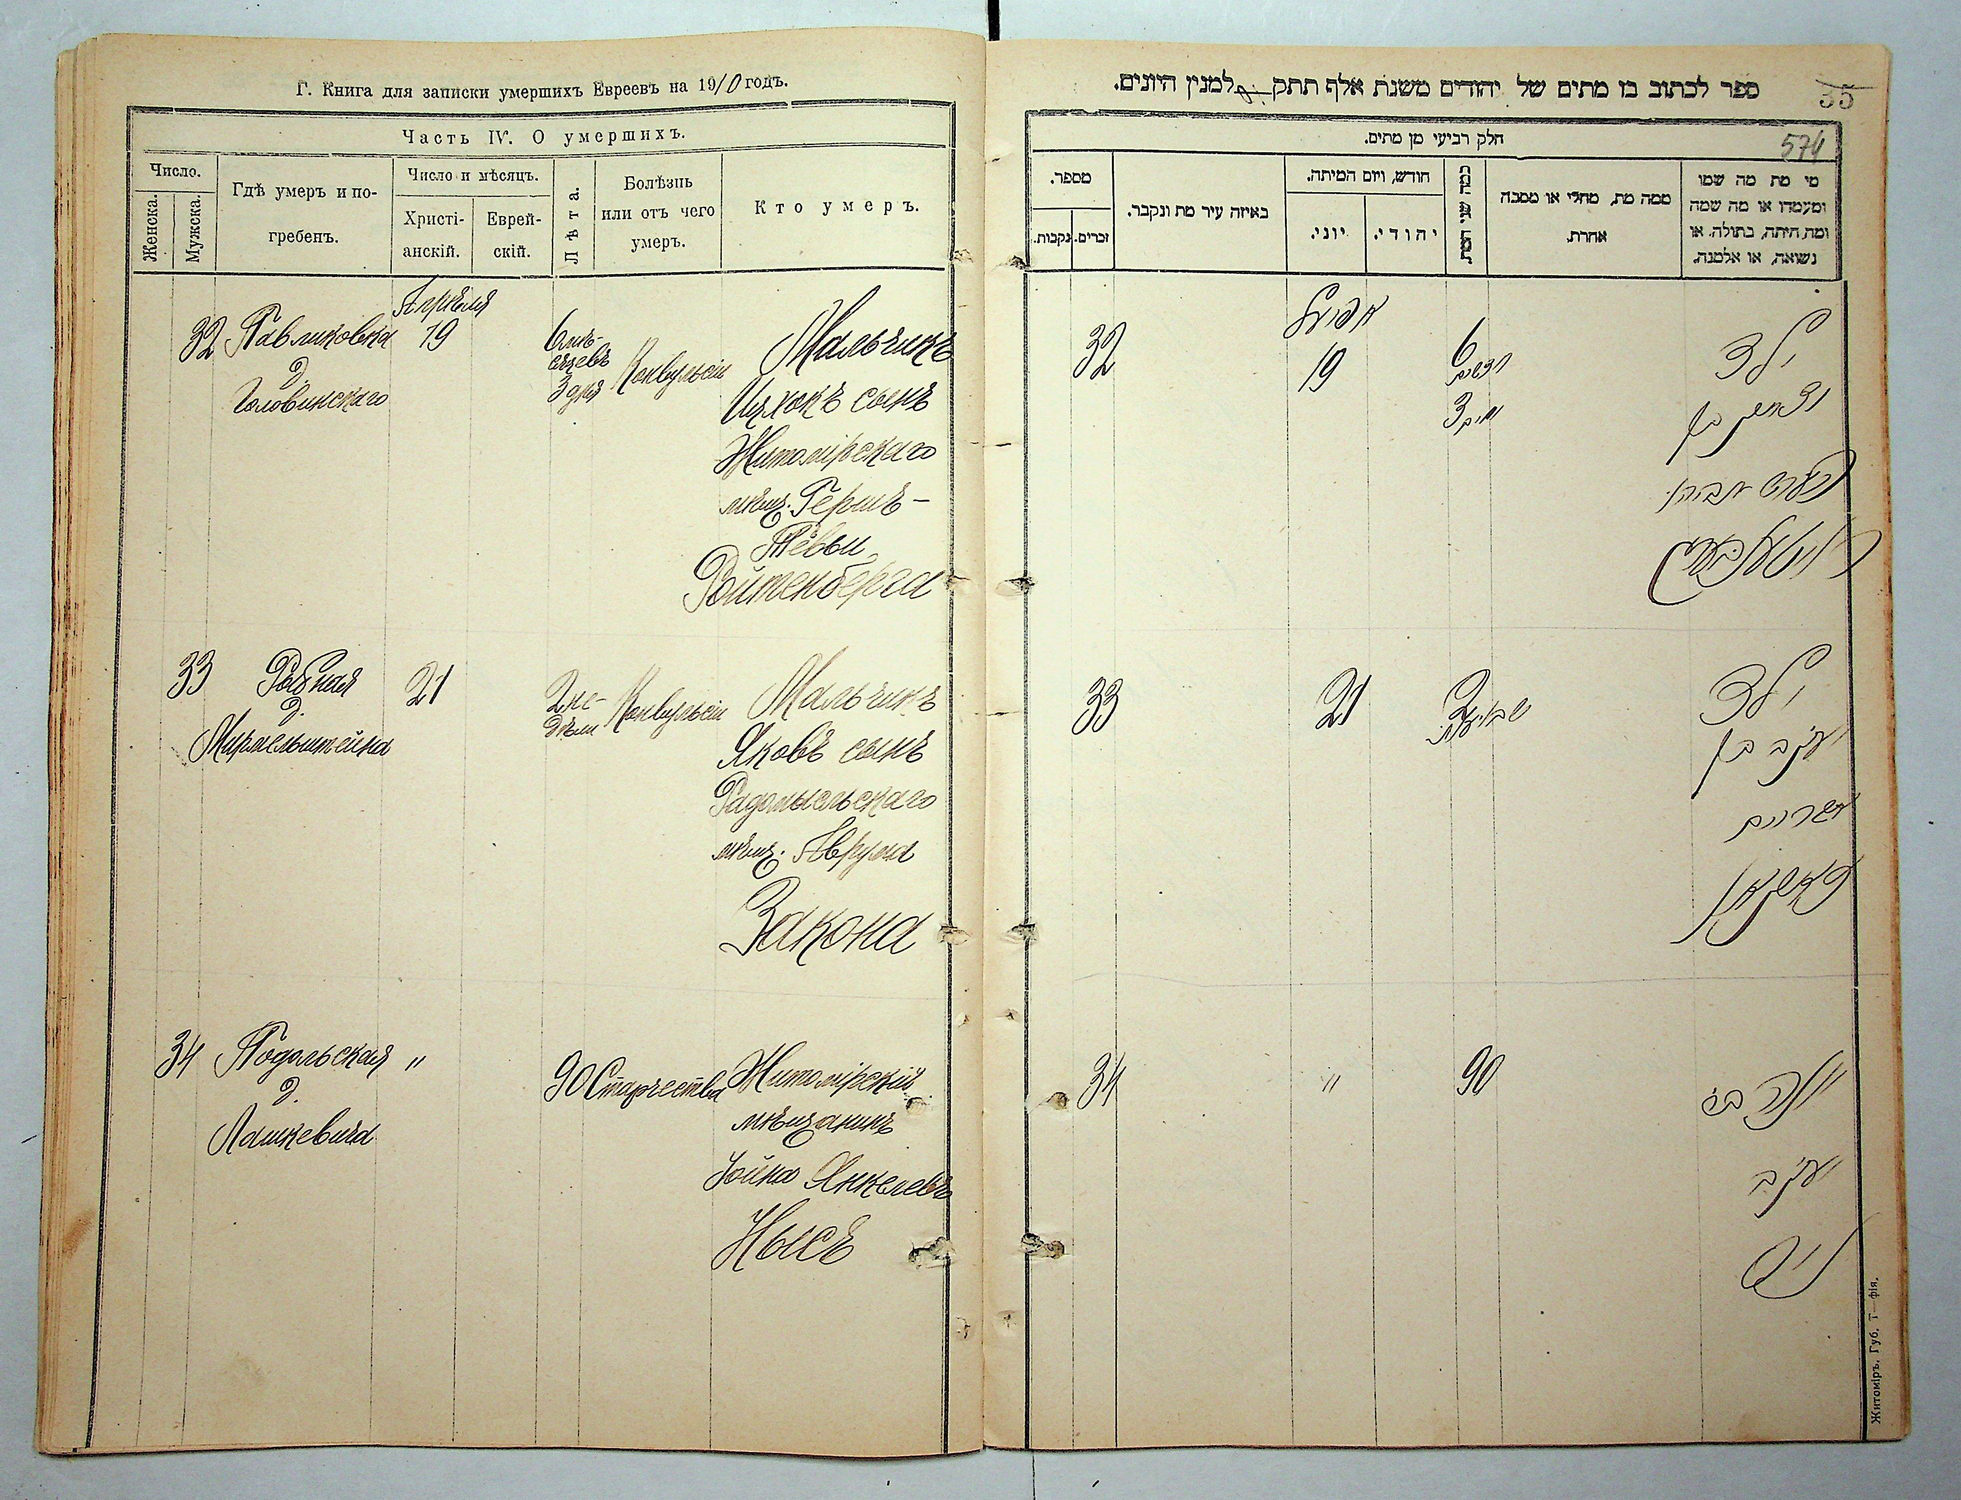 Г. Книга для записки умершихъ Евреевъ на 1910 годъ.
Часть IV. О умершихъ.
Число.
Женска.
Мужска.
Гдѣ умеръ и по-
гребенъ.
Число и мѣсяцъ.
Христі-
анскій.
Еврей-
скій.
Лѣта.
Болѣзнь
или отъ чего
умеръ.
Кто умеръ.
Апрѣля
32
Павликовка
д.
Головинскаго
19
6 мѣ-
сяцевъ
3 дня
Конвульсіи
Мальчикъ
Ицхокъ сынъ
Житомірскаго
мѣщ. Гершъ-
Тевьи
Ройтенберга
33
Рыбная
д.
Мирмельштейна
21
2 не-
дѣли
Конвульсіи
Мальчикъ
Яковъ сынъ
Радомысльскаго
мѣщ. Аврума
Закона
34
Подольская
д.
Лашкевича
"
90
Старчества
Житомірскій
мѣщанинъ
Іойна Янкелевъ
Нысъ
ספר לכתוב בו מתים של יהודים משנת אלף תתק למנין היונים.
35
574
חלק רביעי מן מתים.
מספר.
זכרים.
נקבות.
באיזה עיר מת ונקבר.
חודש, ויום המיתה.
יוני.
יהודי.
כמה שני המת
ממה מת, מחלי או מסבה
אחרת.
מי מת מה שמו
ומעמדו או מה שמה
ומה היתה, בתולה, או
נשואה, או אלמנה.
32
אפריל
19
6
חדשים
3 ימים
ילד
יצחק בן
הערש טביה
רויטענבערג
33
21
2
שבועות
ילד
יעקב בן
אברהם
זאקאן
34
"
90
יונה ב״ר
יעקב
ניס
Житомиръ, Губ. Т—фія.